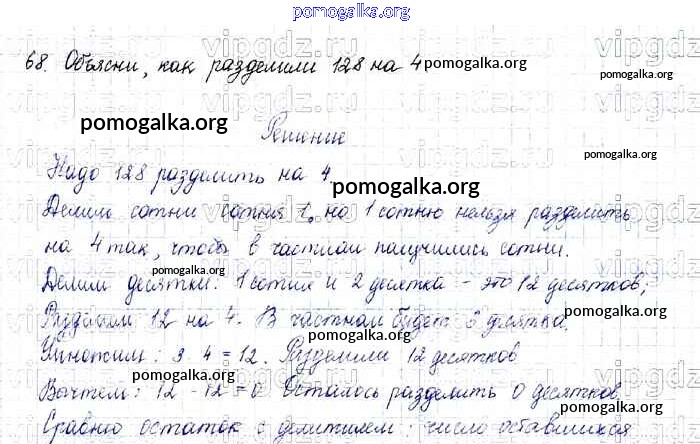 pomogalka.org
68. Объясни, как разделили 128 на 4
pomogalka.org
pomogalka.org
Решение
Надо 128 разделить на 4
pomogalka.org
Делим сотни сотня 1, но 1 сотню нельзя разделить
на 4 так, чтобы в частном получились сотни.
pomogalka.org
Делим десятки: 1 сотня и 2 десятка – это 12 десятков;
pomogalka.org
Разделим 12 на 4. В частном будет 3 десятка.
pomogalka.org
Умножим: 3 4 = 12. Разделили 12 десятков
pomogalka.org
Вычтем: 12 - 12 = 0 Осталось разделить 0 десятков.
pomogalka.org
Сравню остаток с делителем: число оставшихся